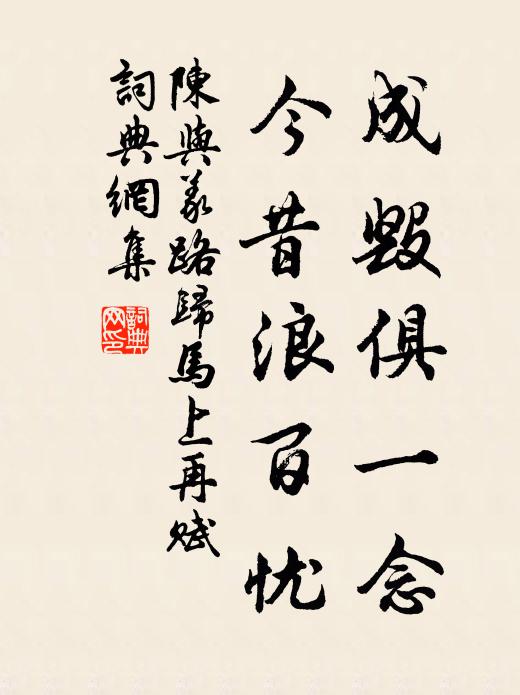 成毀俱一念
今昔浪百忧
陳與義路歸馬上再賦
詞典網集
詞典网印